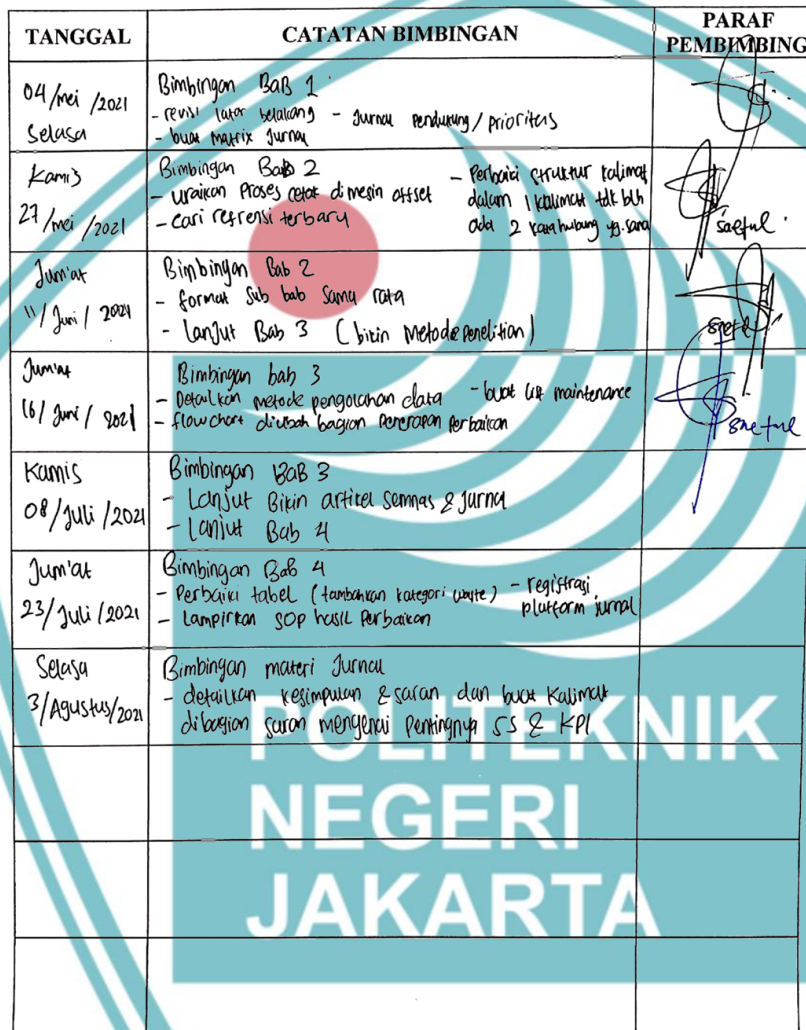 TANGGAL CATATAN BIMBINGAN PARAF PEMBIMBING
04/mei/2021
Selasa
Bimbingan BaB 1
- revisi latar belakang - Jurnal Pendukung/prioritas
- buat Matrix Jurnal
Kamis
27/mei/2021
Bimbingan Bab 2
- uraikan Proses cetak di mesin offset
- cari refrensi terbaru
- Perbaiki struktur kalimat
dalam 1 kalimat tdk blh
ada 2 kata hubung yg. sama
saeful
Jum'at
11/Juni/2021
Bimbingan Bab 2
- format Sub bab Sama rata
- Lanjut Bab 3 (bikin Metode Penelitian)
saeful
Jum'at
16/Juni/2021
Bimbingan bab 3
- Detailkan metode pengolahan data - buat list maintenance
- flowchart diubah bagian Penerapan Perbaikan
saeful
Kamis
08/Juli/2021
Bimbingan BaB 3
- Lanjut Bikin artikel Semnas & Jurnal
- Lanjut Bab 4
Jum'at
23/Juli/2021
Bimbingan Bab 4
- Perbaiki tabel (tambahkan kategori waste) - registrasi
platform jurnal
- Lampirkan SOP hasil Perbaikan
Selasa
3/Agustus/2021
Bimbingan materi Jurnal
- detailkan kesimpulan & saran dan buat Kalimat
dibagian saran mengenai Pentingnya 5S & KPI
POLITEKNIK
NEGERI
JAKARTA